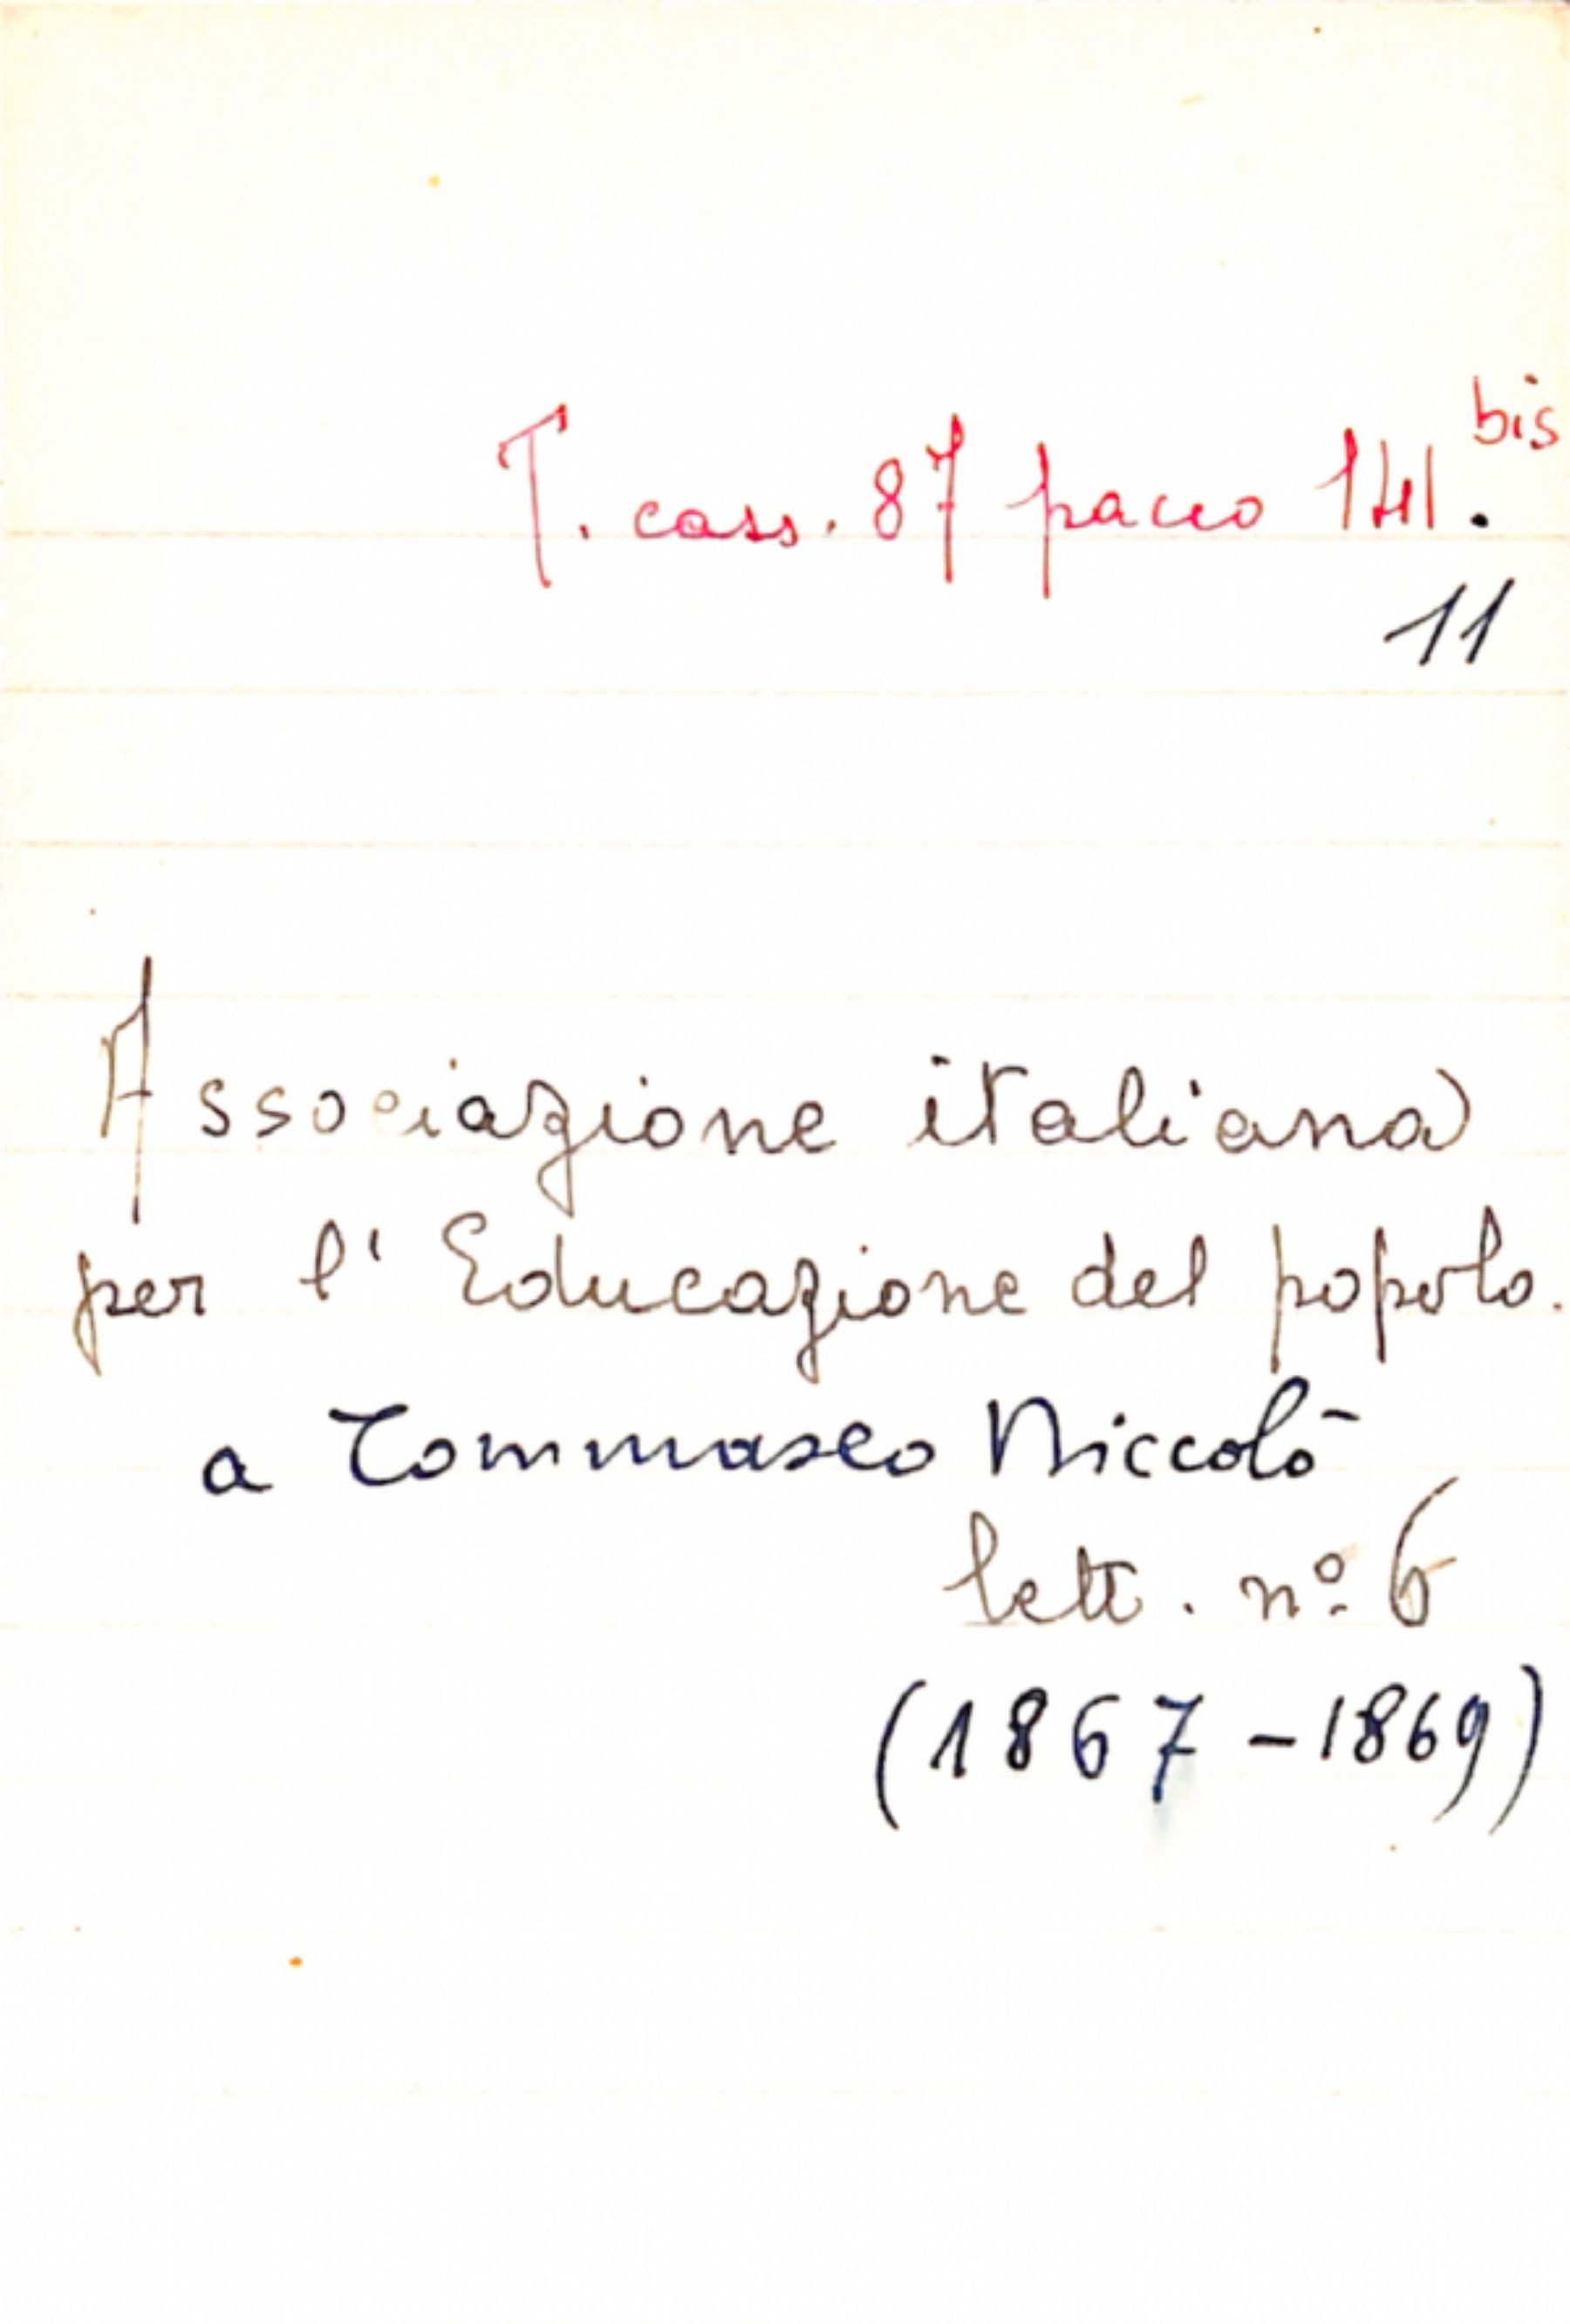 T. cass. 87 pacco 141. bis
11
Associazione italiana
per l' Educazione del popolo.
a Tommaseo Niccolò
lett. nº 6
(1867-1869)